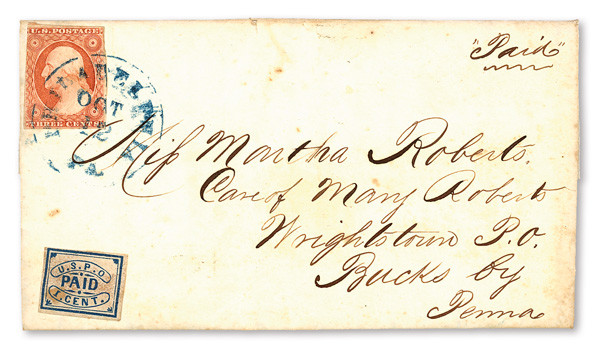 U.S. POSTAGE
THREE CENTS
PHILADELPHIA
OCT
12
PA
"Paid"
Miss Martha Roberts.
Care of Mary Roberts
Wrightstown P.O.
Bucks Co
Penna
U.S.P.O.
PAID
1.CENT.